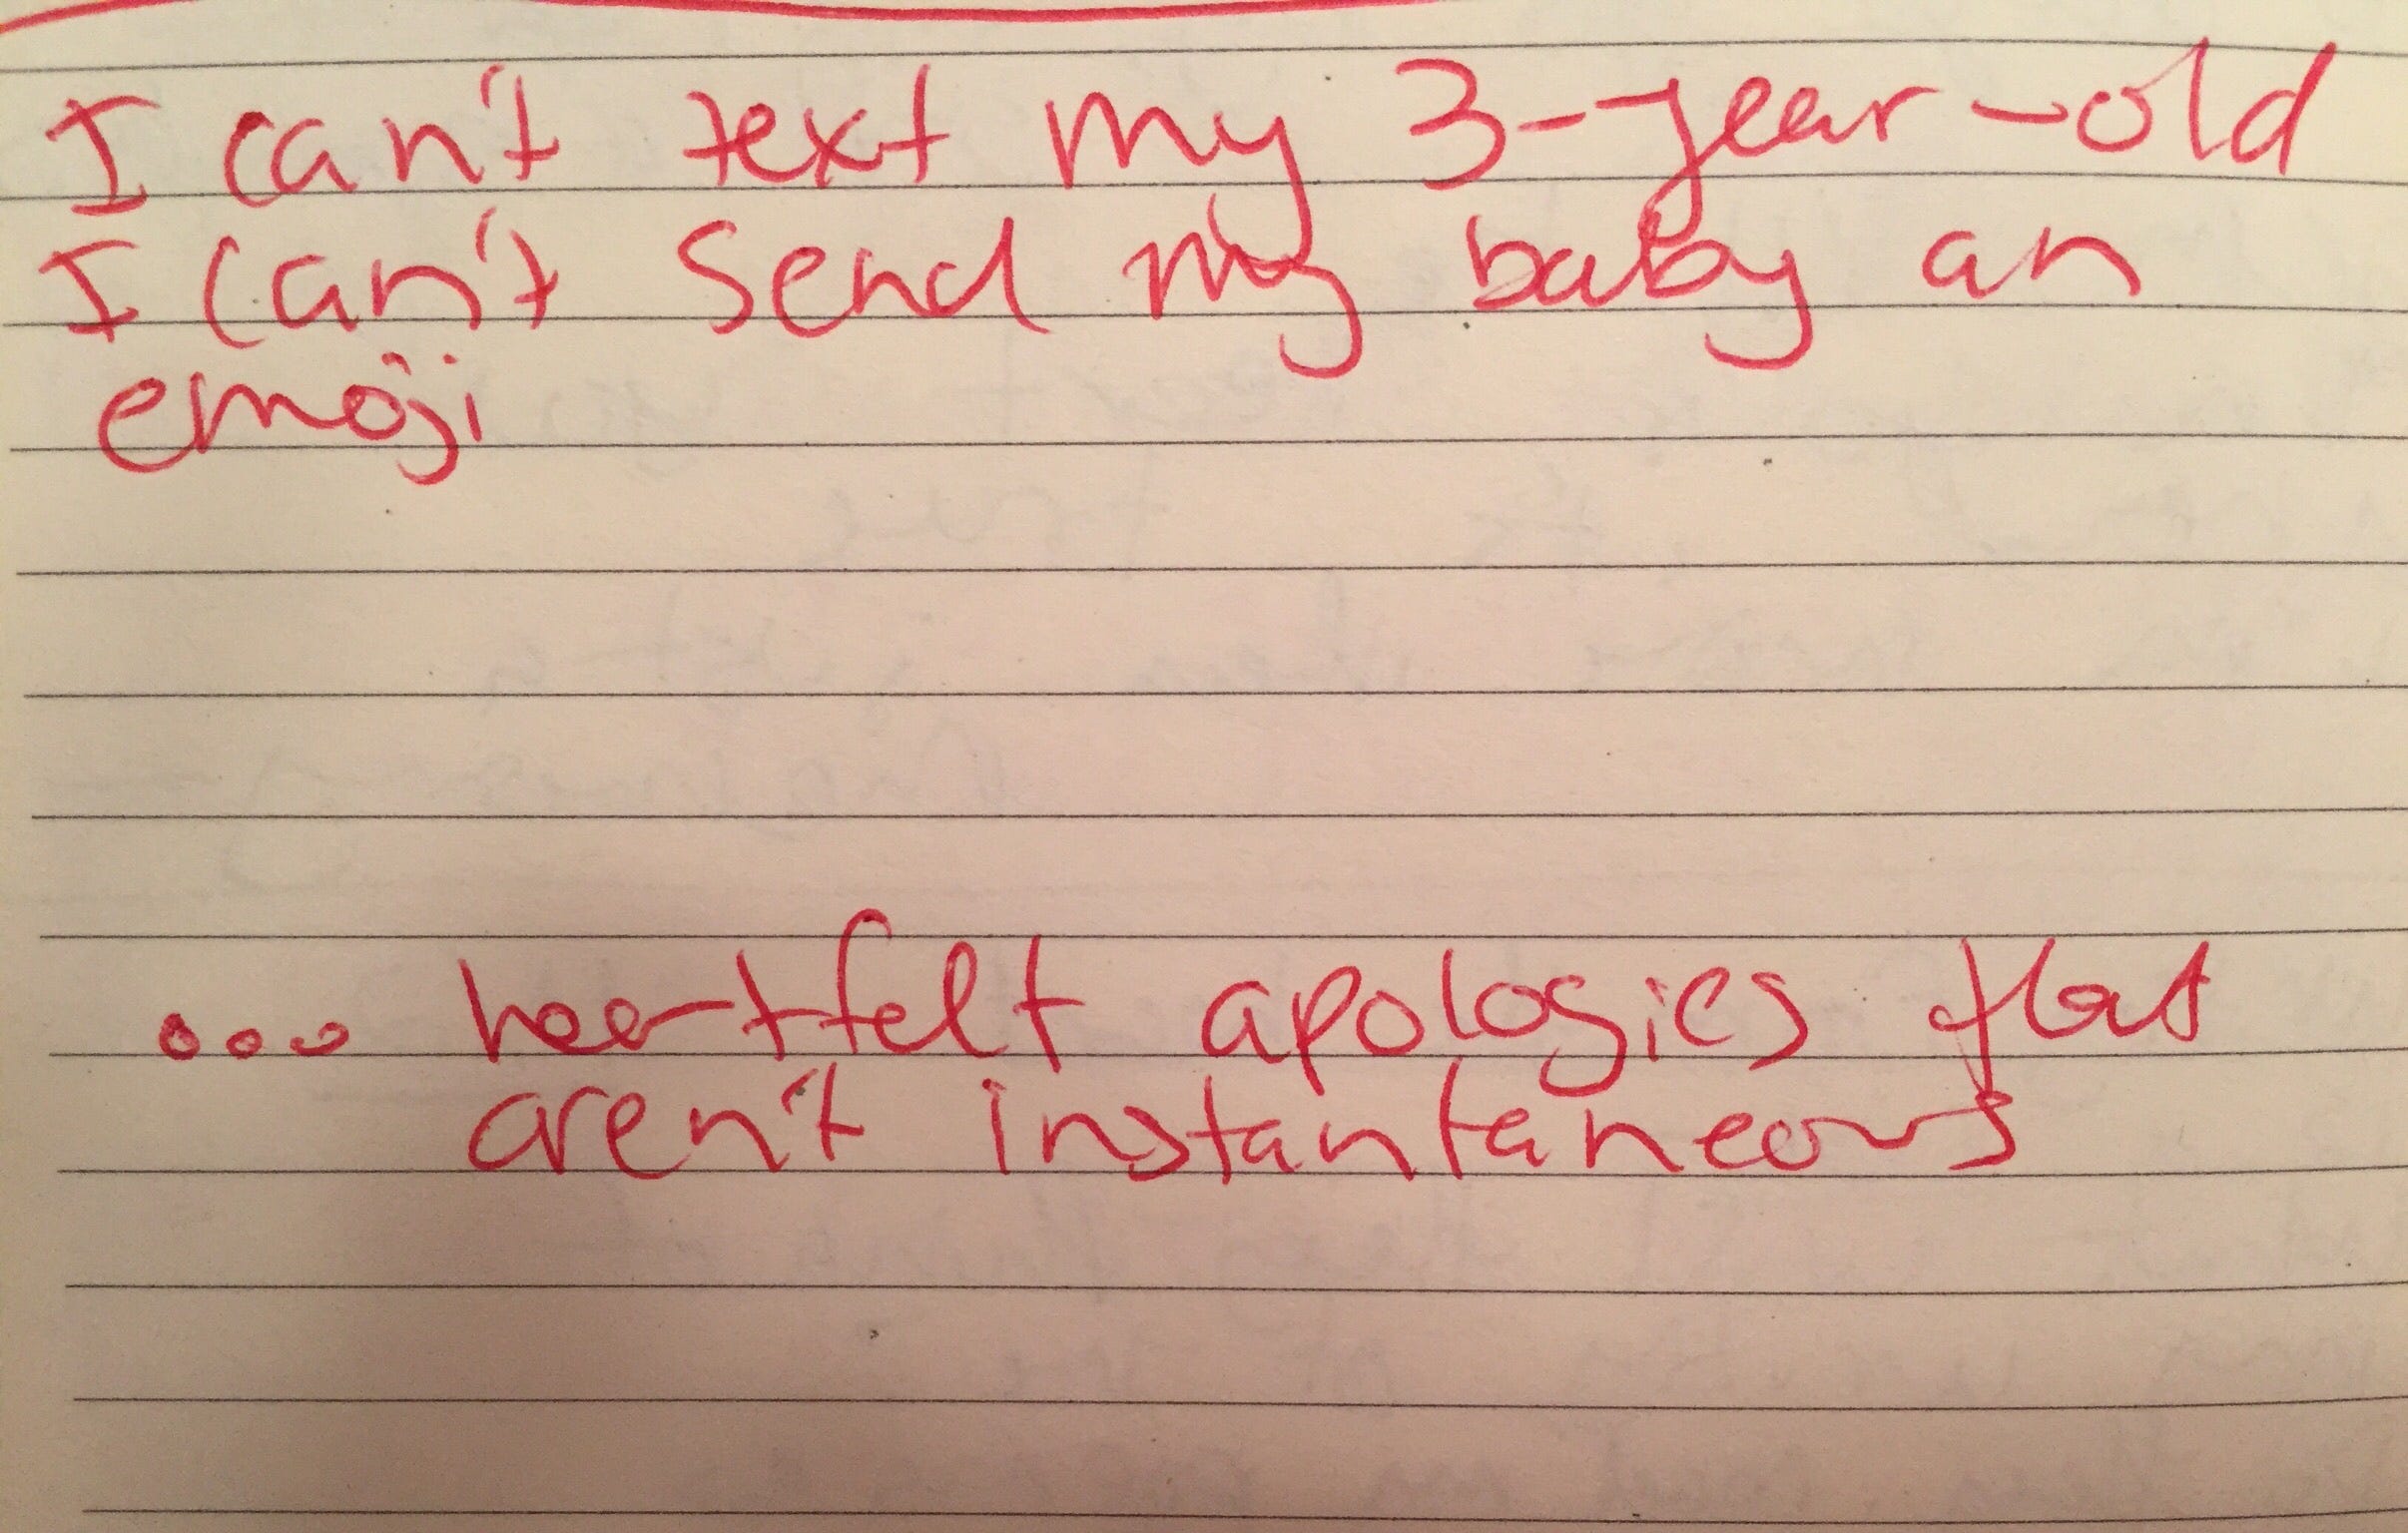 I can't text my 3-year-old
I can't send my baby an
emoji
... heartfelt apologies that
aren't instantaneous